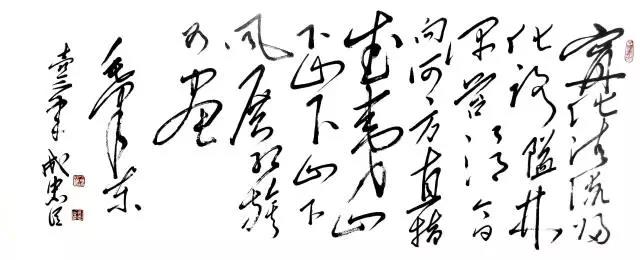 宁化清流归
化路隘林
深苔滑今日
向何方直指
武夷山
下山下山下
风展红旗
如画
毛泽东